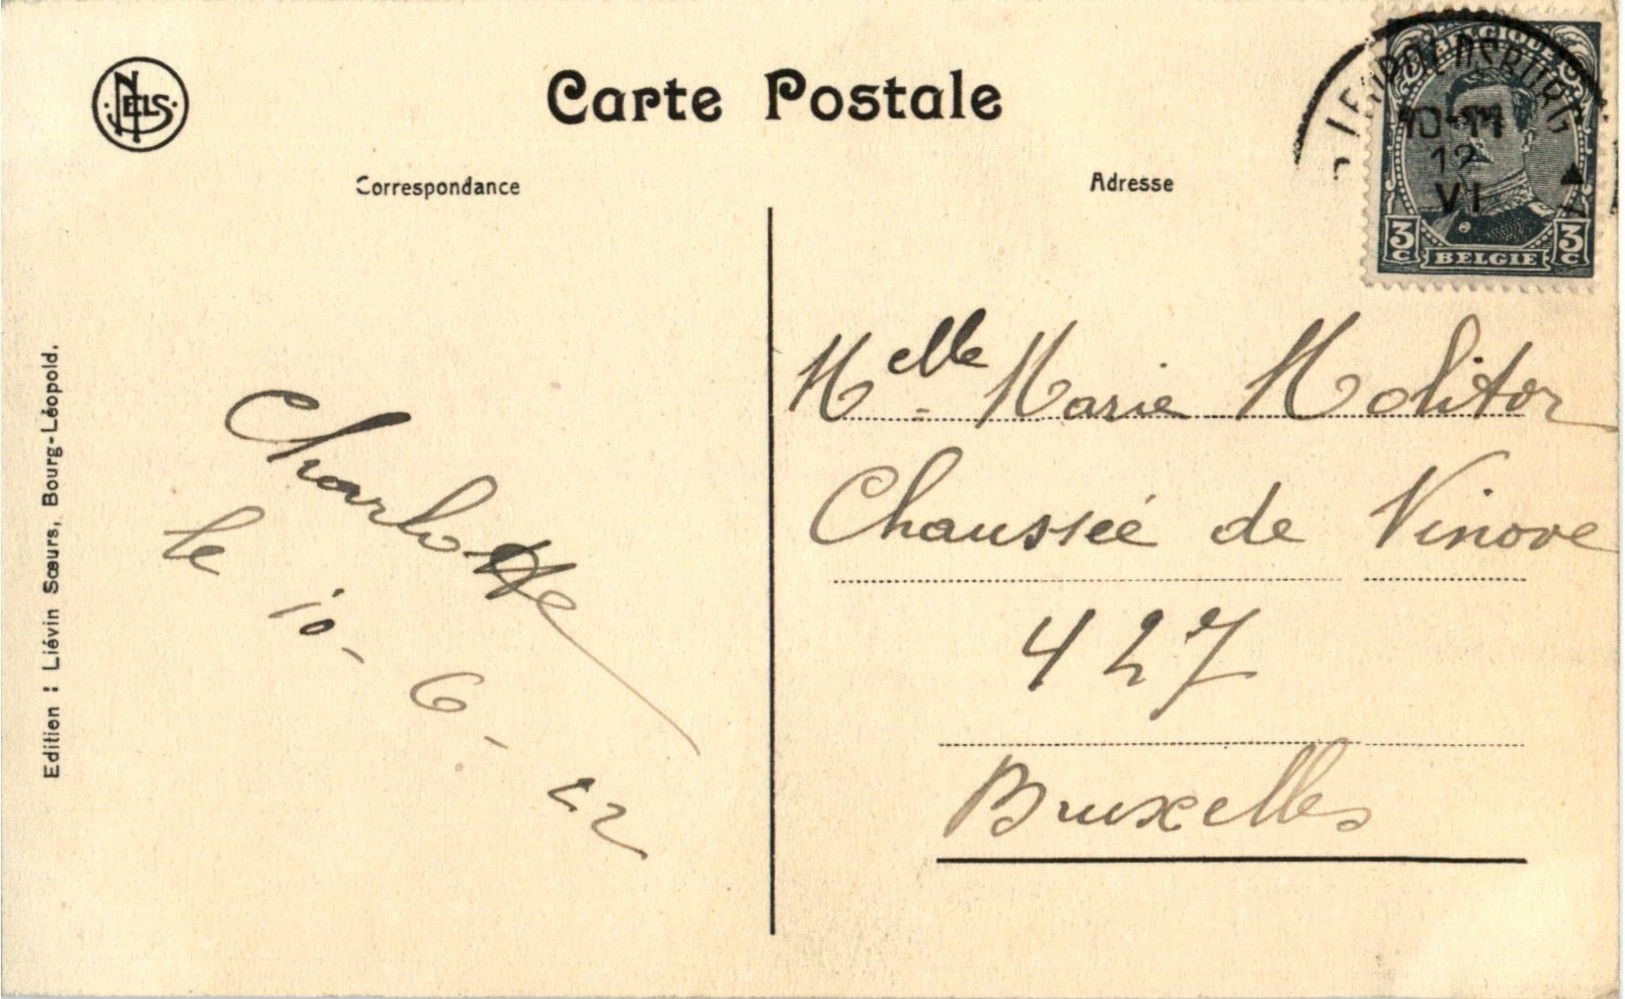 NELS
Carte Postale
Correspondance
Adresse
BELGIQUE
LEOPOLDSBURG
10-11
12
VI
3 C
BELGIE
3 C
Edition : Liévin Sœurs, Bourg-Léopold.
Charlotte
le 10-6-22
Melle Marie Molitor
Chaussée de Ninove
427
Bruxelles